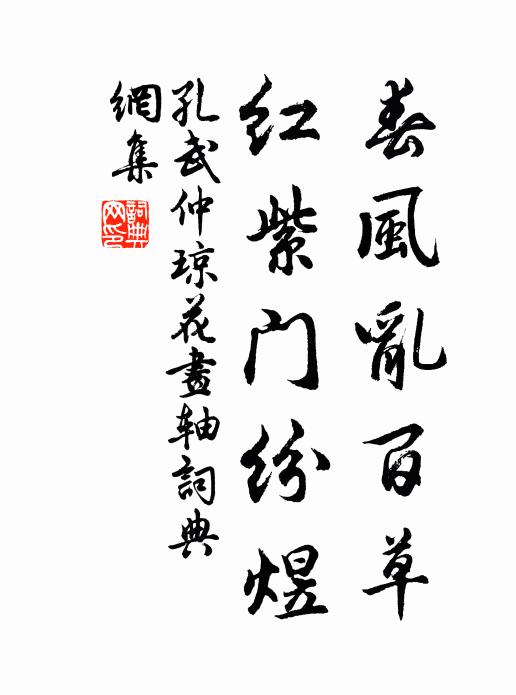 春風亂百草
紅紫门紛煜
孔武仲琼花畫軸詞典
網集
詞典
网印